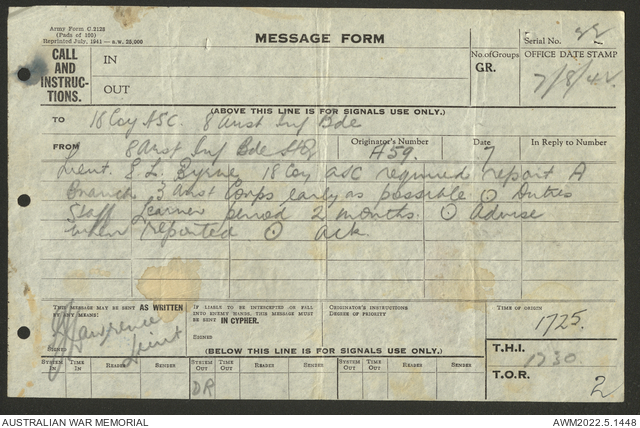 Army Form C.2128
(Pads of 100)
Reprinted July, 1941 — n.w. 25,000
MESSAGE FORM
Serial No.
CALL AND INSTRUC-TIONS.
IN
OUT
No. of Groups
GR.
OFFICE DATE STAMP
7/8/42
(ABOVE THIS LINE IS FOR SIGNALS USE ONLY.)
TO 18 Coy ASC. 8 Aust Inf Bde
FROM 8 Aust Inf Bde
Originator's Number A59.
Date 7
In Reply to Number
Lieut. E L. Byrne 18 Coy ASC required report A
Branch 3 Aust Corps early as possible ⊙ Duties
Staff Learner period 2 months. ⊙ Advise
when reported ⊙ ack.
THIS MESSAGE MAY BE SENT AS WRITTEN BY ANY MEANS:
Lawrence
Lieut
SIGNED
IF LIABLE TO BE INTERCEPTED OR FALL INTO ENEMY HANDS, THIS MESSAGE MUST BE SENT IN CIPHER.
SIGNED
ORIGINATOR'S INSTRUCTIONS
DEGREE OF PRIORITY
TIME OF ORIGIN
1725.
(BELOW THIS LINE IS FOR SIGNALS USE ONLY.)
T.H.I. 1730
SYSTEM IN TIME IN READER SENDER SYSTEM OUT TIME OUT READER SENDER SYSTEM OUT TIME OUT READER SENDER
T.O.R.
DR
2
AUSTRALIAN WAR MEMORIAL
AWM2022.5.1448